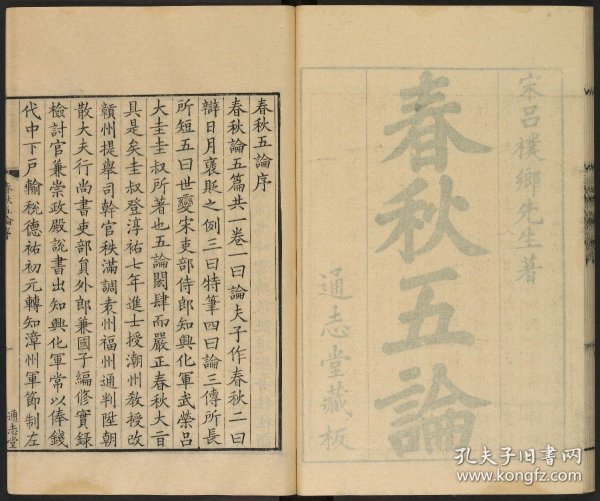 宋呂樸鄉先生著
春秋五論
通志堂藏板
春秋五論序
春秋論五篇共一卷一曰論夫子作春秋二曰
辯日月襃貶之例三曰特筆四曰論三傳所長
所短五曰世變宋吏部侍郎知興化軍武榮呂
大圭圭叔所著也五論閎肆而嚴正春秋大旨
具是矣圭叔登淳祐七年進士授潮州敎授改
贛州提舉司幹官秩滿調袁州福州通判陞朝
散大夫行尚書吏部員外郎兼國子編修實錄
檢討官兼崇政殿說書出知興化軍常以俸錢
代中下戸輸稅德祐初元轉知漳州軍節制左
春秋五論序
一
通志堂
孔夫子旧书网
www.kongfz.com